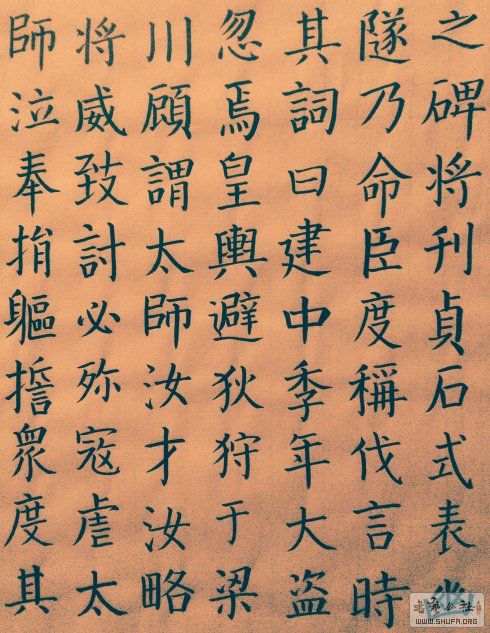 之碑将刊貞石式表幽
隧乃命臣度稱伐言時
其詞曰建中季年大盗
忽焉皇輿避狄狩于梁
川顧謂太師汝才汝略
将威致討必殄寇虐太
師泣奉捐軀擔衆度其
WWW.SHUFA.ORG